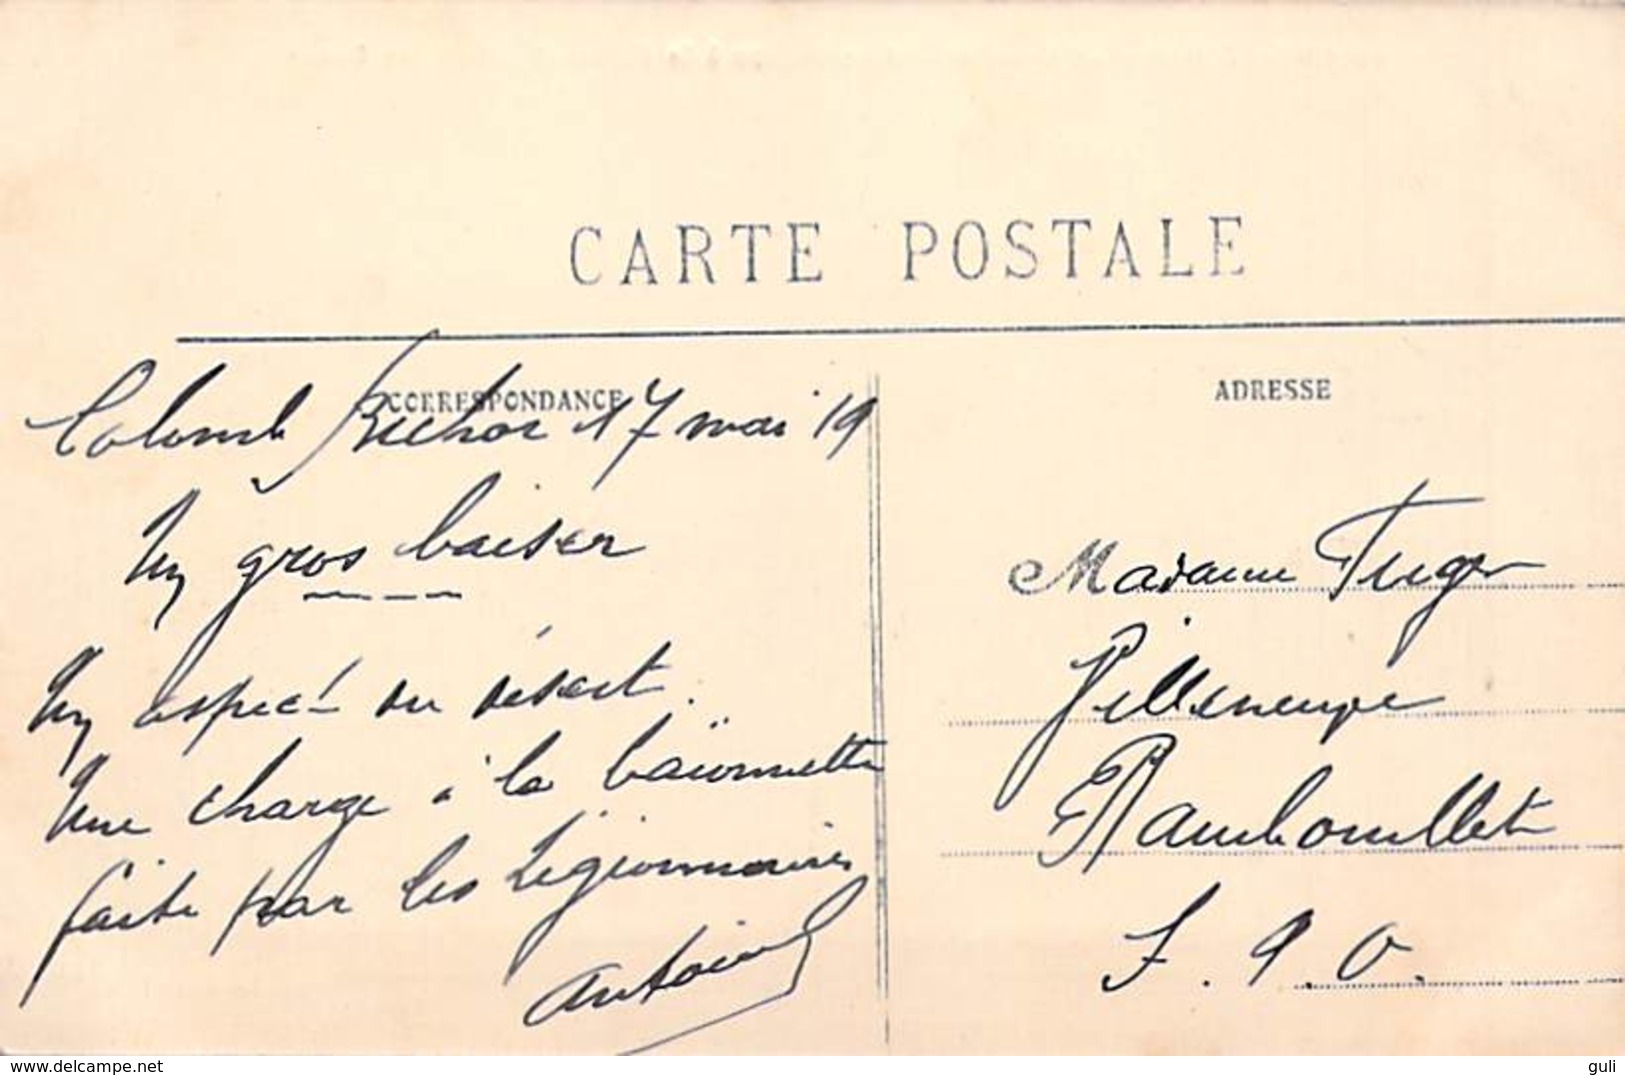 CARTE POSTALE
CORRESPONDANCE
Colomb Béchar 17 mai 19
Un gros baiser
Un aspect du désert.
Une charge à la baïonnette
faite par les Légionnaires
Antoine
ADRESSE
Madame
Villeneuve
Rambouillet
S. &. O.
www.delcampe.net
guli